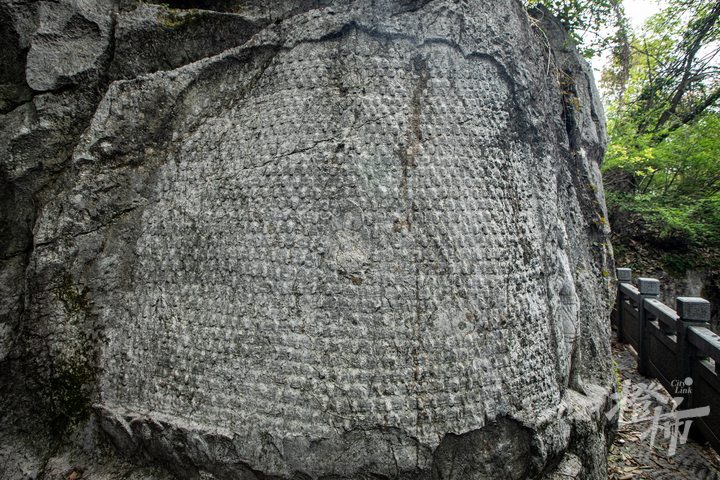 City
Link
橙柿